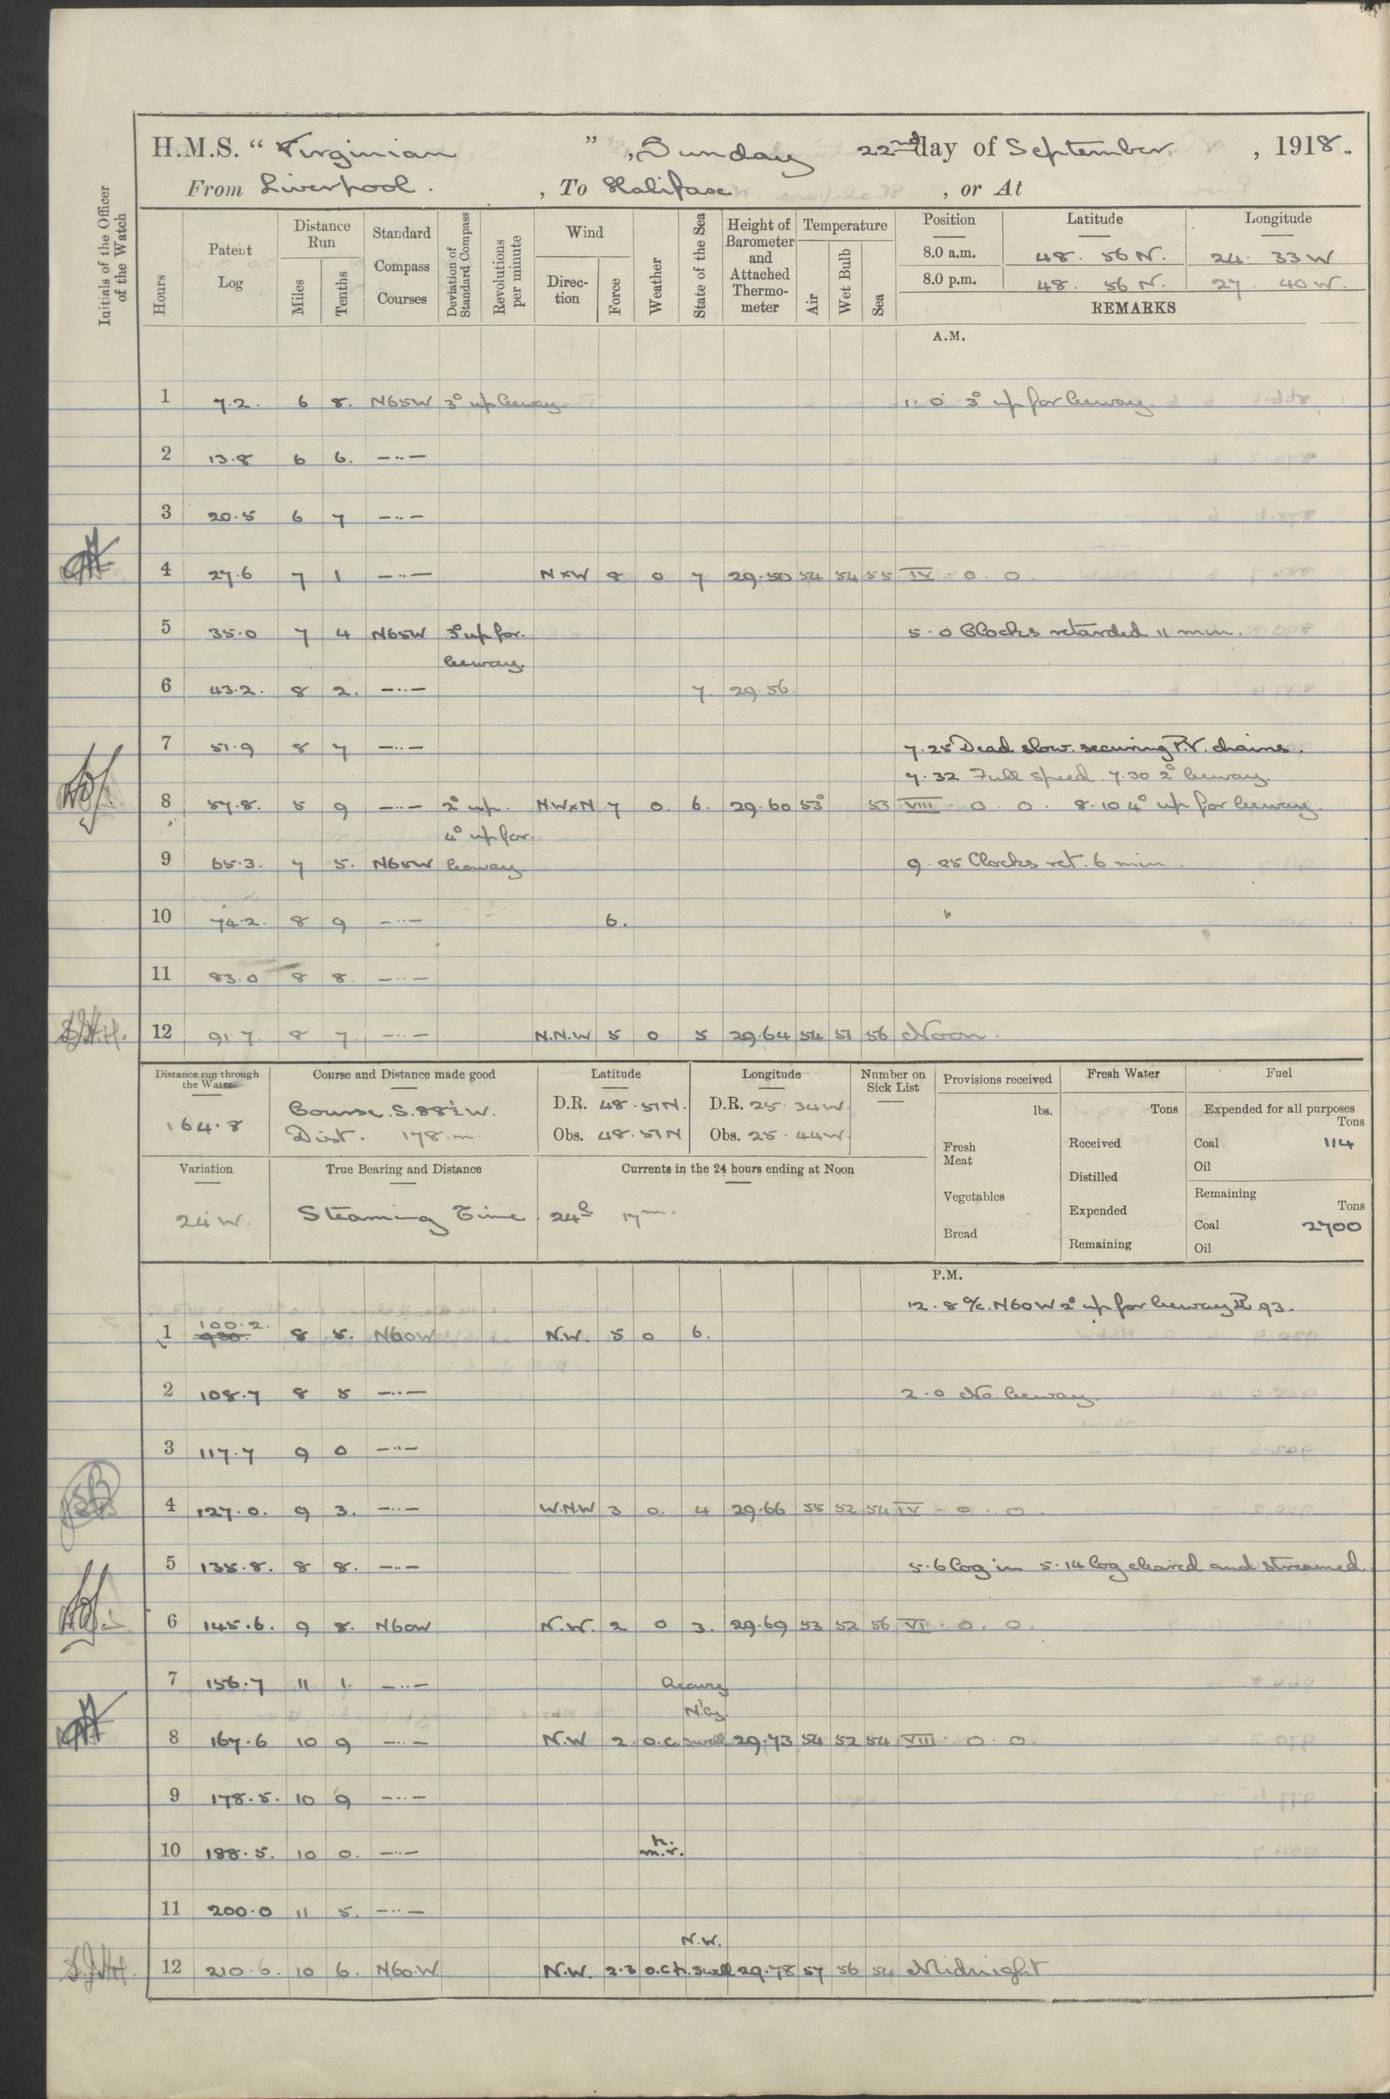 H.M.S. “ Virginian ” , Sunday 22nd day of September , 1918.
From Liverpool. , To Halifax , or At
Initials of the Officer of the Watch
Hours Patent Log Distance Run Miles Tenths Standard Compass Courses Deviation of Standard Compass Revolutions per minute Wind Direction Force Weather State of the Sea Height of Barometer and Attached Thermometer Temperature Air Wet Bulb Sea Position Latitude Longitude
8.0 a.m. 48. 56 N. 24. 33 W
8.0 p.m. 48. 56 N. 27. 40 W.
REMARKS
A.M.
1 7.2. 6 8. N65W 3° up leeway 1. 0 3° up for leeway
2 13.8 6 6. —..—
3 20.5 6 7 —..—
4 27.6 7 1 —..— NxW 8 0 7 29.50 54 54 55 IV . 0 . 0
5 35.0 7 4 N65W 3° up for. 5.0 Clocks retarded 11 min.
leeway
6 43.2. 8 2. —..— 7 29.56
7 51.9 8 7 —..— 7.25 Dead slow. securing P.V. chains.
7.32 Full speed 7.30 2° leeway
8 57.8. 5 9 —..— 2° up. N.WxN 7 0. 6. 29.60 53° 53 VIII . 0 . 0 . 8.10 4° up for leeway
4° up for.
9 65.3. 7 5. N65W leeway 9.25 Clocks ret. 6 min.
10 74.2. 8 9 —..— 6.
11 83.0 8 8. —..—
12 91.7 8 7 —..— N.N.W 5 0 5 29.64 54 51 56 Noon.
Distance run through the Water Course and Distance made good Latitude Longitude Number on Sick List Provisions received Fresh Water Fuel
164.8 Course. S.88½ W. D.R. 48.51N. D.R. 25. 34W lbs. Tons Expended for all purposes Tons
Dist. 178.m Obs. 48.51N Obs. 25. 44W. Fresh Meat Received Coal 114
Oil
Variation True Bearing and Distance Currents in the 24 hours ending at Noon Distilled Remaining Tons
24 W. Steaming Time 24h 17m. Vegetables Expended Coal 2700
Bread Remaining Oil
P.M.
12.8 a/c. N60W 2° up for leeway PL 93.
1 100.2. 8 5. N60W N.W. 5 0 6.
2 108.7 8 5 —..— 2.0 No leeway.
3 117.7 9 0 —..—
4 127.0. 9 3. —..— W.N.W 3 0. 4 29.66 55 52 54 IV . 0 . 0
5 135.8. 8 8. —..— 5.6 log in 5.14 log cleared and streamed
6 145.6. 9 8. N60W N.W. 2 0 3. 29.69 53 52 56 VI . 0 . 0.
7 156.7 11 1. —..— heavy
N'ly
8 167.6 10 9 —..— N.W 2 o.c. swell 29.73 54 52 54 VIII . 0 . 0.
9 178.5. 10 9 —..—
10 188.5. 10 0. —..— h.
m.r.
11 200.0 11 5. —..—
N.W.
12 210.6. 10 6. N60.W N.W. 2.3 o.c.h. swell 29.78 57 56 54 Midnight